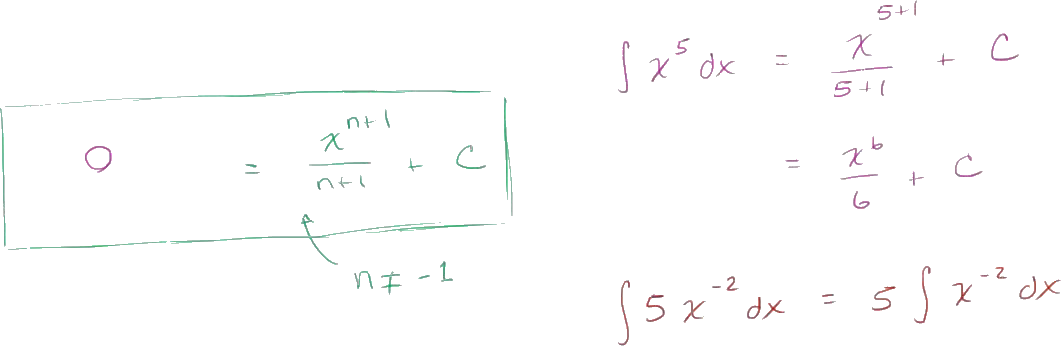 O = x^{n+1}/(n+1) + C
n ≠ -1
∫ x^5 dx = x^{5+1}/(5+1) + C
= x^6/6 + C
∫ 5 x^{-2} dx = 5 ∫ x^{-2} dx